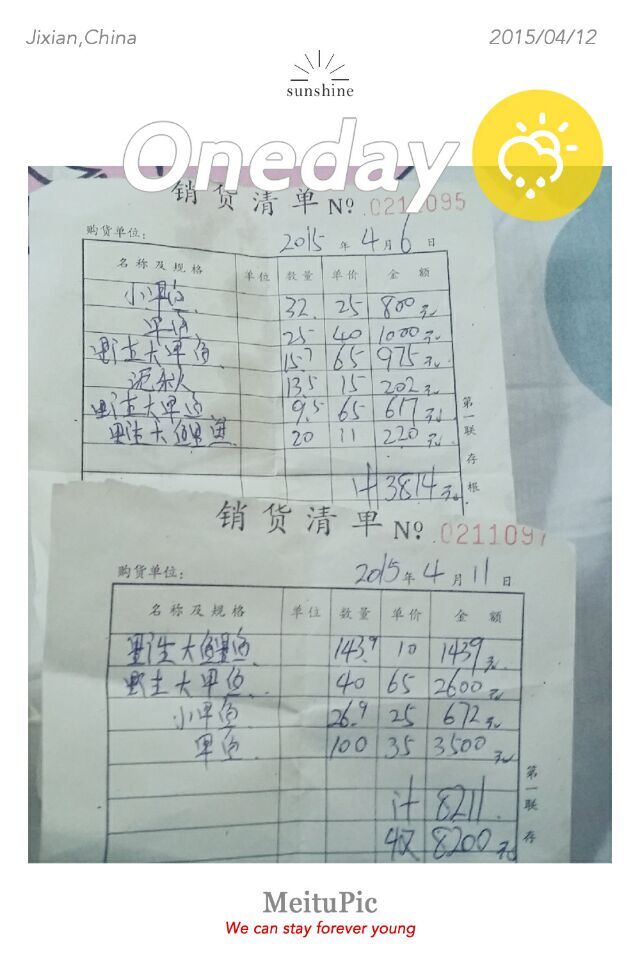 Jixian,China 2015/04/12
sunshine
Oneday
销货清单 No. 0211095
购货单位: 2015 年 4 月 6 日
名称及规格 单位 数量 单价 金额
小甲鱼 32 25 800元
甲鱼 25 40 1000元
野生大甲鱼 15.7 65 975元
13.5 15 202元
野生大甲鱼 9.5 65 617元
野生大鲤鱼 20 11 220元
计 3814元
第一联存根
销货清单 No. 0211097
购货单位: 2015 年 4 月 11 日
名称及规格 单位 数量 单价 金额
野生大鲤鱼 143.9 10 1439元
野生大甲鱼 40 65 2600元
小甲鱼 26.9 25 672元
甲鱼 100 35 3500元
计 8211
收 8200元
第一联存
MeituPic
We can stay forever young